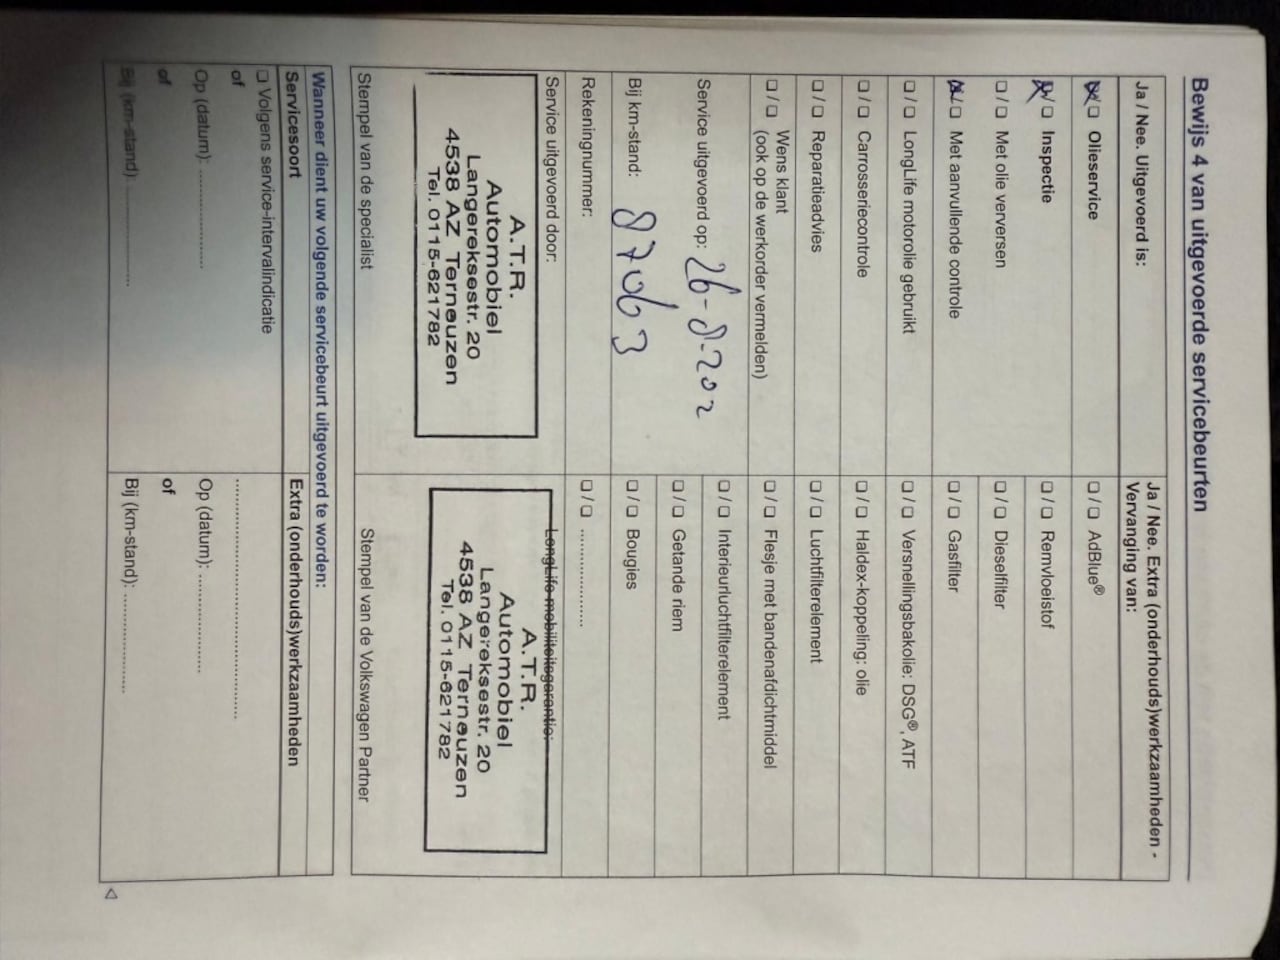 Bewijs 4 van uitgevoerde servicebeurten
Ja / Nee. Uitgevoerd is:
☒/☐ Olieservice
☒/☐ Inspectie
☐/☐ Met olie verversen
☒/☐ Met aanvullende controle
☐/☐ LongLife motorolie gebruikt
☐/☐ Carrosseriecontrole
☐/☐ Reparatieadvies
☐/☐ Wens klant
(ook op de werkorder vermelden)
Service uitgevoerd op: 26-8-202
Bij km-stand: 87063
Rekeningnummer:
Service uitgevoerd door:
A.T.R.
Automobiel
Langereksestr. 20
4538 AZ Terneuzen
Tel. 0115-621782
Stempel van de specialist
Ja / Nee. Extra (onderhouds)werkzaamheden -
Vervanging van:
☐/☐ AdBlue®
☐/☐ Remvloeistof
☐/☐ Dieselfilter
☐/☐ Gasfilter
☐/☐ Versnellingsbakolie: DSG®, ATF
☐/☐ Haldex-koppeling: olie
☐/☐ Luchtfilterelement
☐/☐ Flesje met bandenafdichtmiddel
☐/☐ Interieurluchtfilterelement
☐/☐ Getande riem
☐/☐ Bougies
☐/☐ ....................
LongLife-mobiliteitsgarantie:
A.T.R.
Automobiel
Langereksestr. 20
4538 AZ Terneuzen
Tel. 0115-621782
Stempel van de Volkswagen Partner
Wanneer dient uw volgende servicebeurt uitgevoerd te worden:
Servicesoort
☐ Volgens service-intervalindicatie
of
Op (datum): ....................
of
Bij (km-stand): ....................
Extra (onderhouds)werkzaamheden
..................................................
Op (datum): ....................
of
Bij (km-stand): ....................